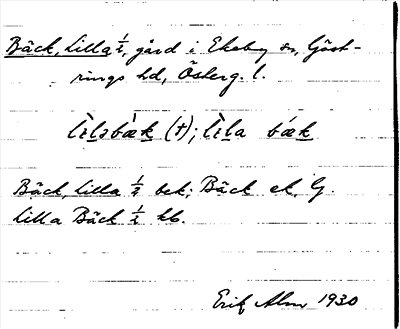 Bäck, Lilla ½, gård i Ekeby sn, Göst-
rings hd, Österg. l.
lìlsbàk (†); lìla bák
Bäck, Lilla ½ bek; Bäck ek, G.
Lilla Bäck ½ kb.
Erik Alm 1930